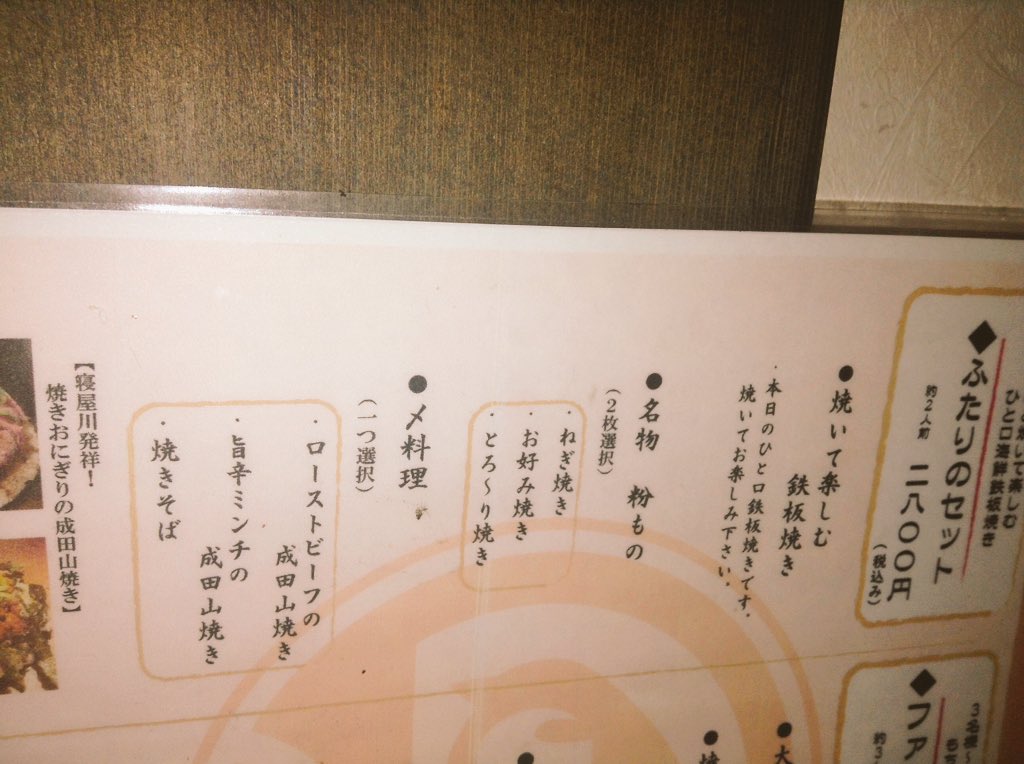 ひと口海鮮鉄板焼き
◆ふたりのセット
約2人前 二八〇〇円
(税込み)
●焼いて楽しむ
鉄板焼き
・本日のひと口鉄板焼きです。
焼いてお楽しみ下さい。
●名物 粉もの
(2枚選択)
・ねぎ焼き
・お好み焼き
・とろ～り焼き
●〆料理
(一つ選択)
・ローストビーフの
成田山焼き
・旨辛ミンチの
成田山焼き
・焼きそば
【寝屋川発祥！
焼きおにぎりの成田山焼き】
3名様～
◆ファ
約3
●大
●焼